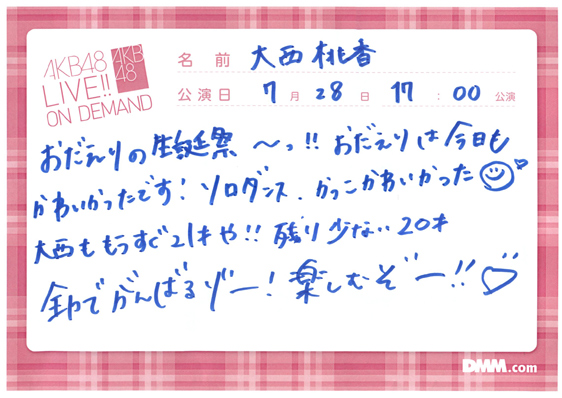 AKB48
LIVE!!
ON DEMAND
AKB
48
名前 大西桃香
公演日 7月28日 17:00公演
おだえりの生誕祭 〜っ!! おだえりは今日も
かわいかったです! ソロダンス、かっこかわいかった
大西ももうすぐ21才や!! 残り少ない20才
全力でがんばるゾー! 楽しむぞー!!♡
DMM.com